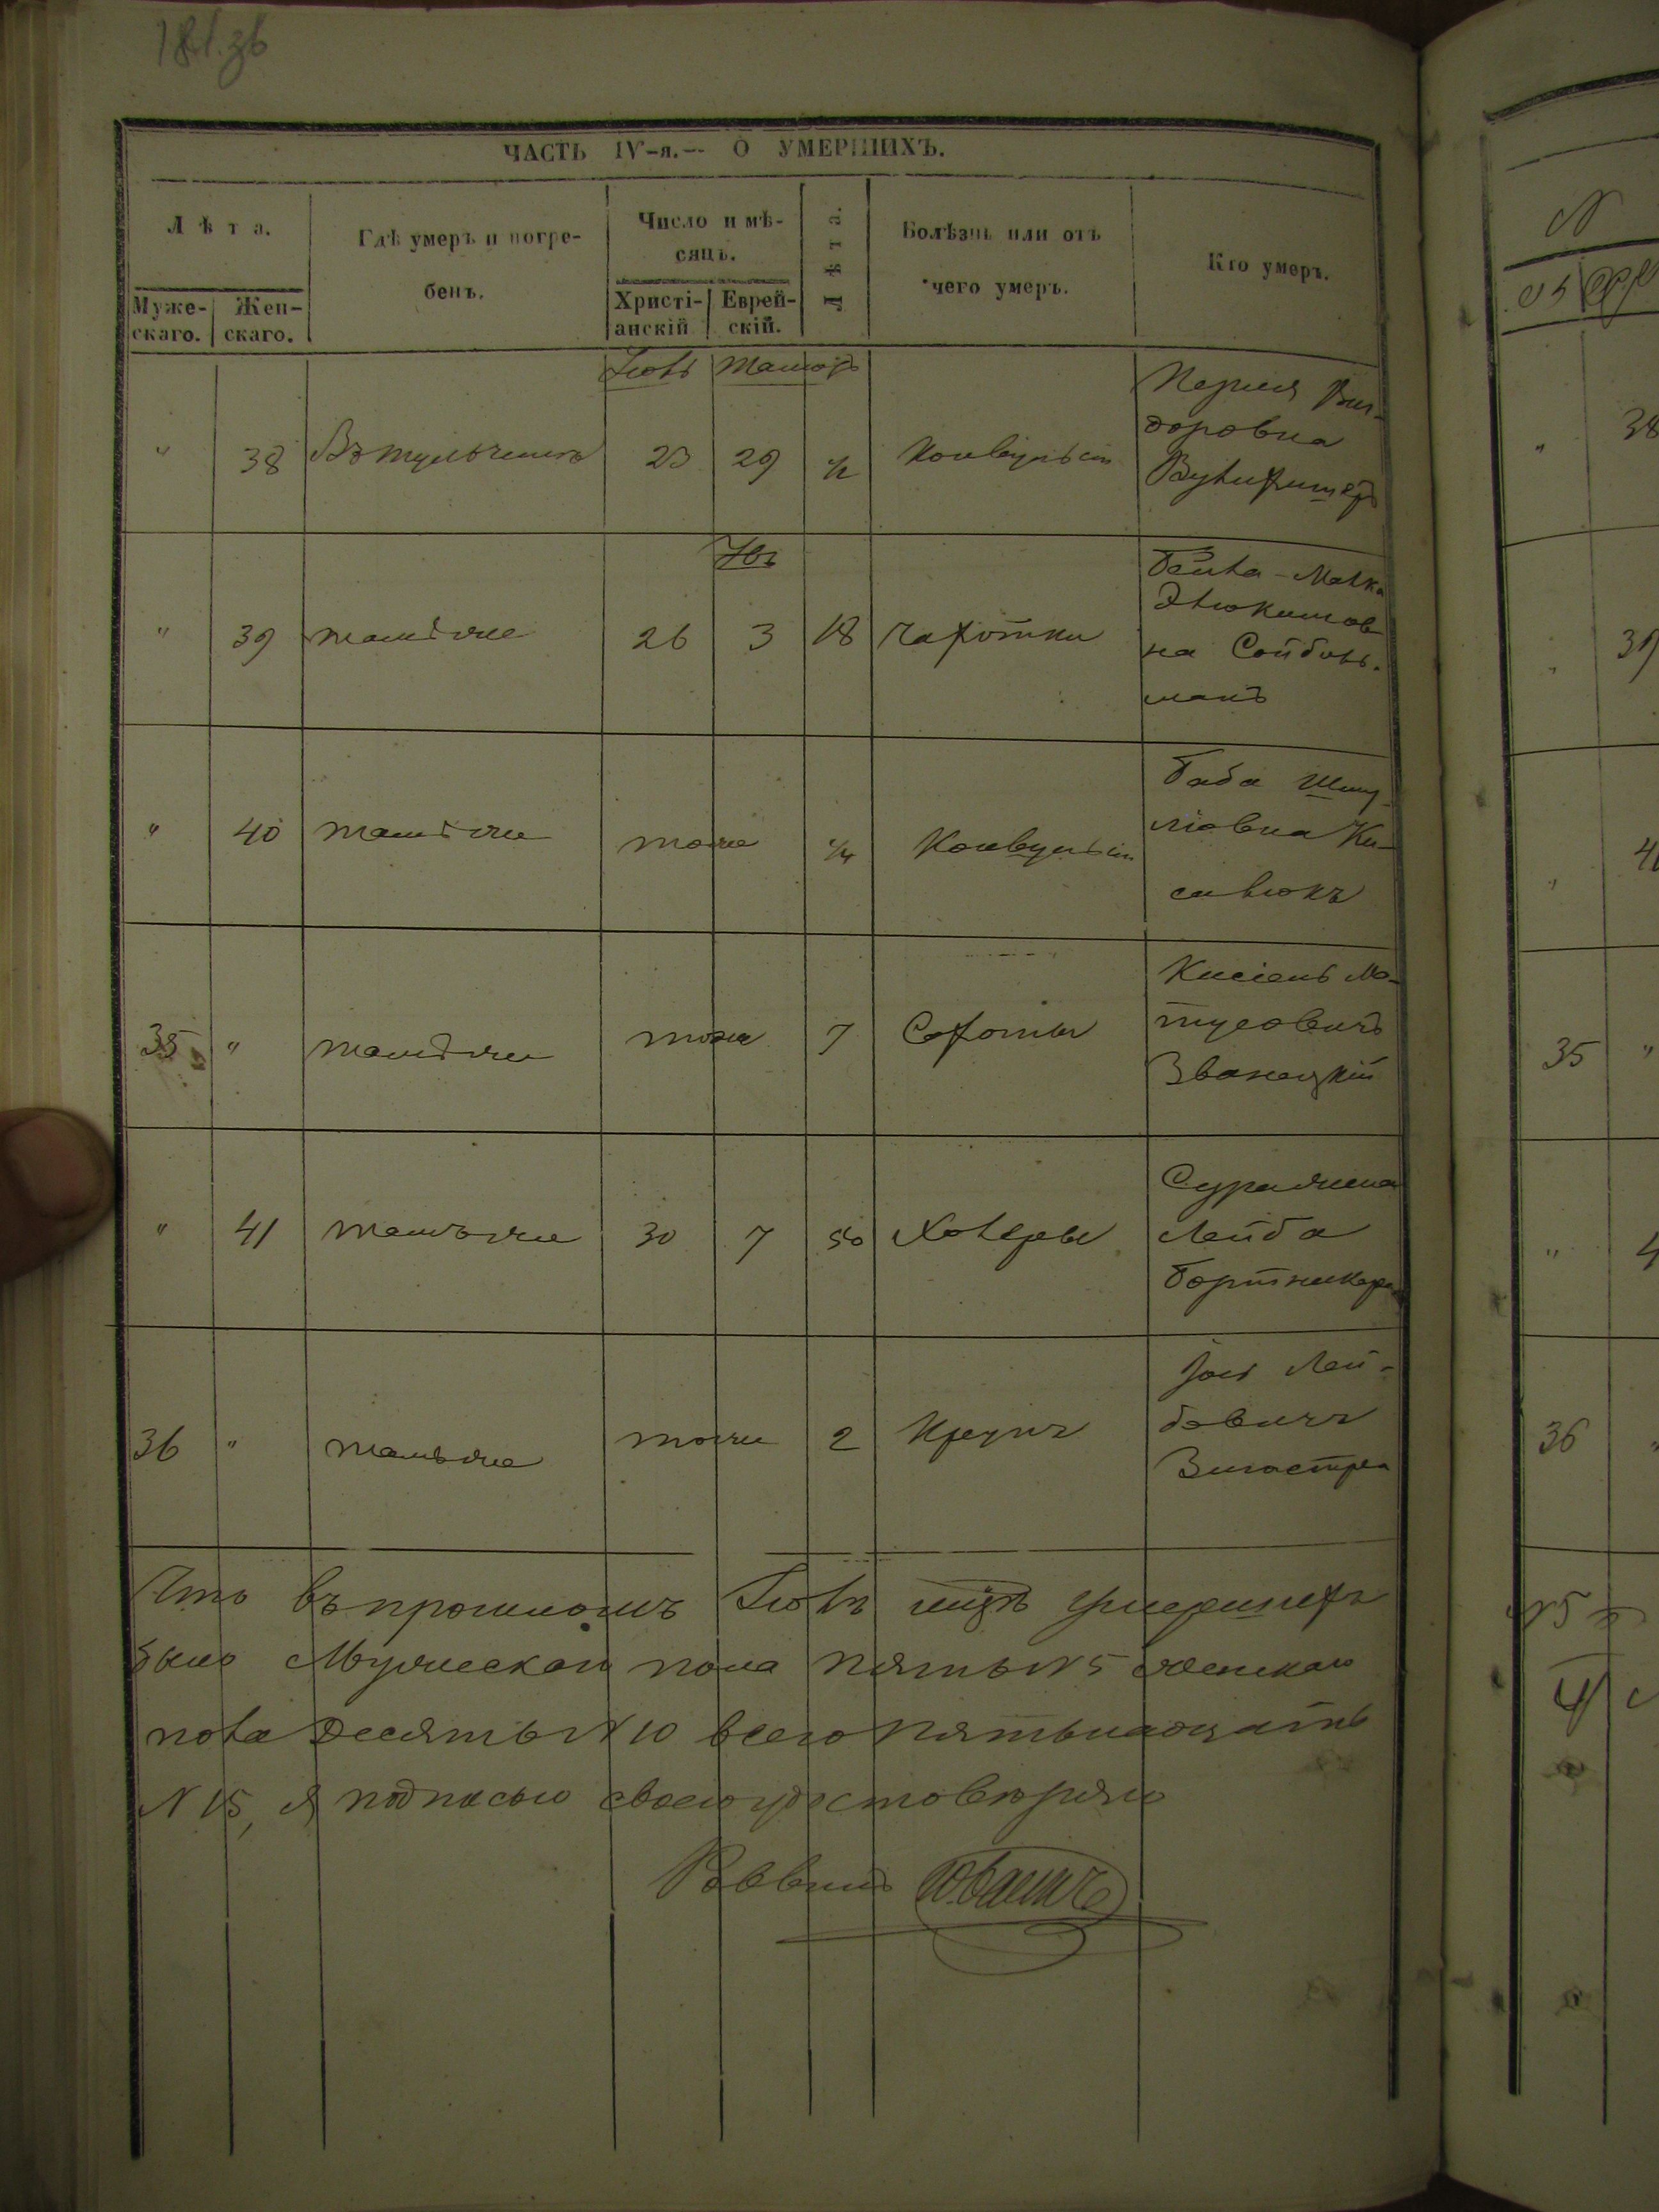 181.зв
ЧАСТЬ IV-я.— О УМЕРШИХЪ.
Лѣта.
Муже-
скаго.
Жен-
скаго.
Гдѣ умеръ и погре-
бенъ.
Число и мѣ-
сяцъ.
Христі-
анскій
Еврей-
скій.
Лѣта.
Болѣзнь или отъ
чего умеръ.
Кто умеръ.
Іюль Тамозъ
" 38 Въ Тульчинѣ 23 29 1/2 Конвульсіи
Перля Ви-
доровна
Вульфишеръ
Ювъ
" 39 тамъ же 26 3 18 Чахотки
Бейла-Малка
Элюкимов
на Сойбель-
манъ
" 40 тамъ же тоже 1/4 Конвульсіи
Баба Шму-
ліовна Ки-
савлюкъ
35 " тамъ же тоже 7
Кисіель Мо-
тусовичъ
Званецкій
" 41 тамъ же 30 7 50 Холеры
Сура жена
Лейба
Бортникера
36 " тамъ же тоже 2 Крупъ
Лей-
бовичъ
Что въ прошломъ Іюлѣ мцѣ умершихъ
было Мужескаго пола пять N 5 женскаго
пола десять N 10 всего пятьнадцать
N 15, я подписью своею удостовѣряю
Раввинъ
N
38
39
35 "
" 4
36
N 5